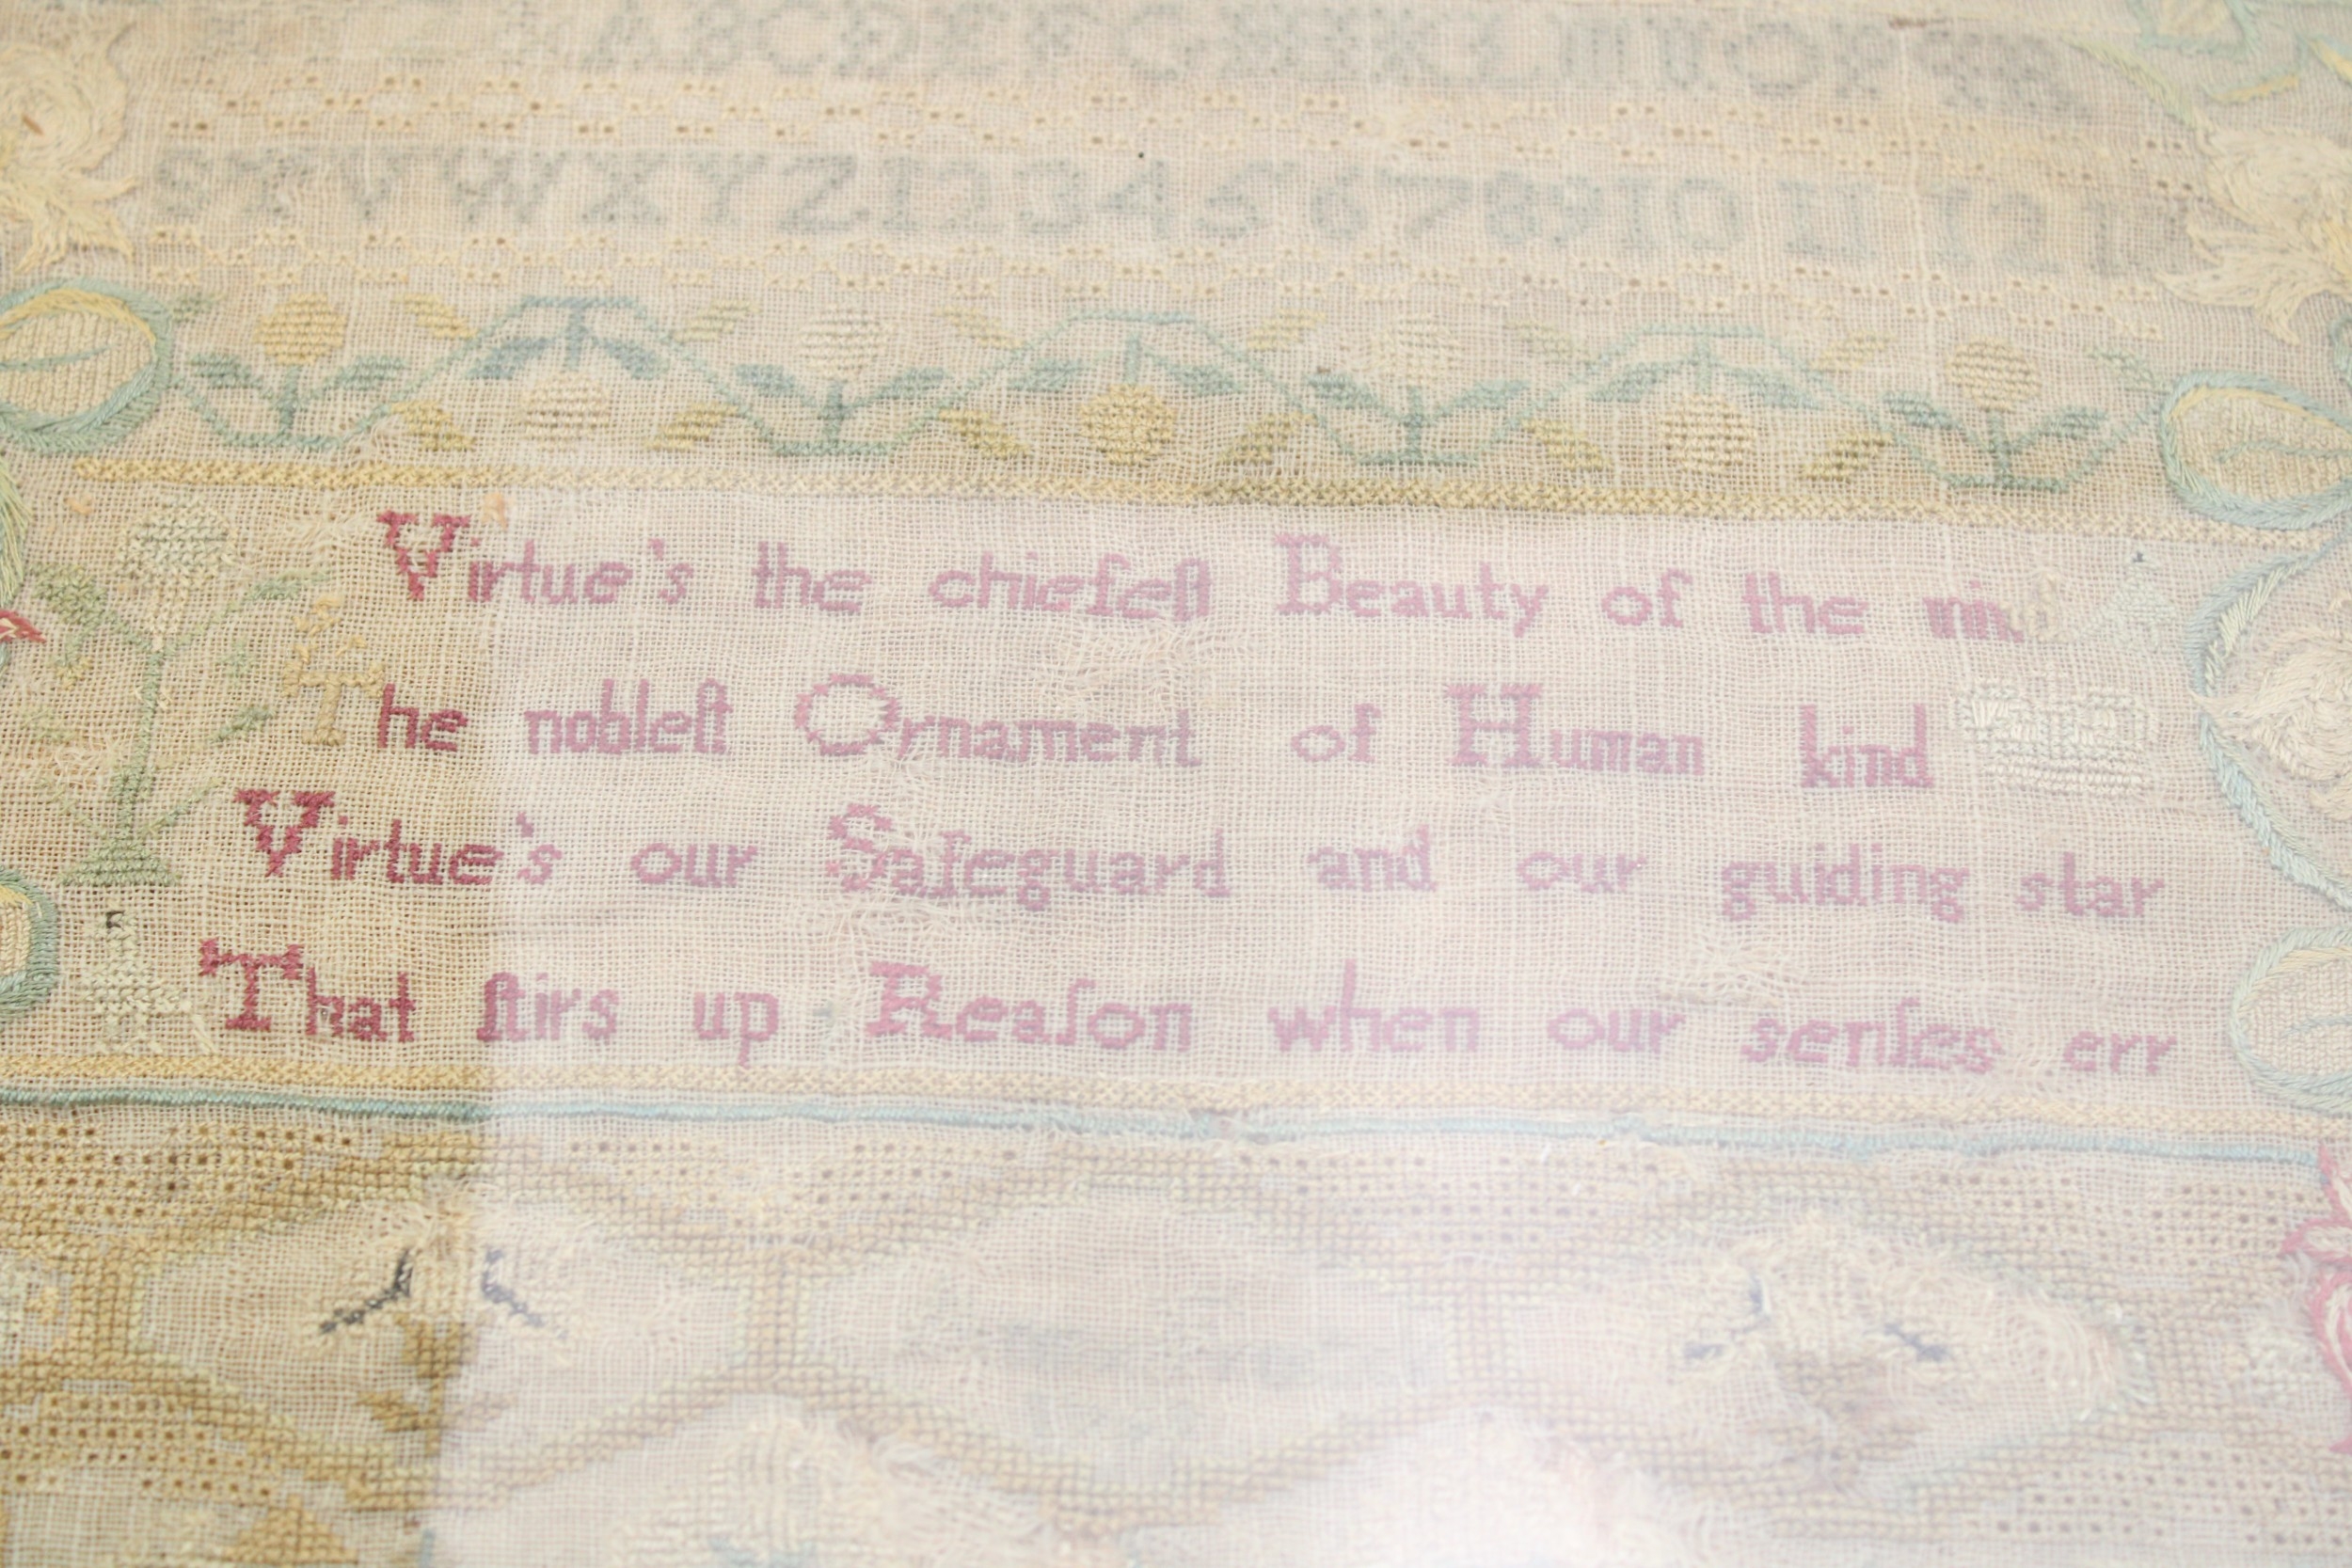 ABCDEFGHIKLMNOPQR
STVWXYZ123456789101112
Virtue's the chiefeſt Beauty of the
The nobleſt Ornament of Human kind
Virtue's our Safeguard and our guiding star
That ſtirs up Reaſon when our senſes err